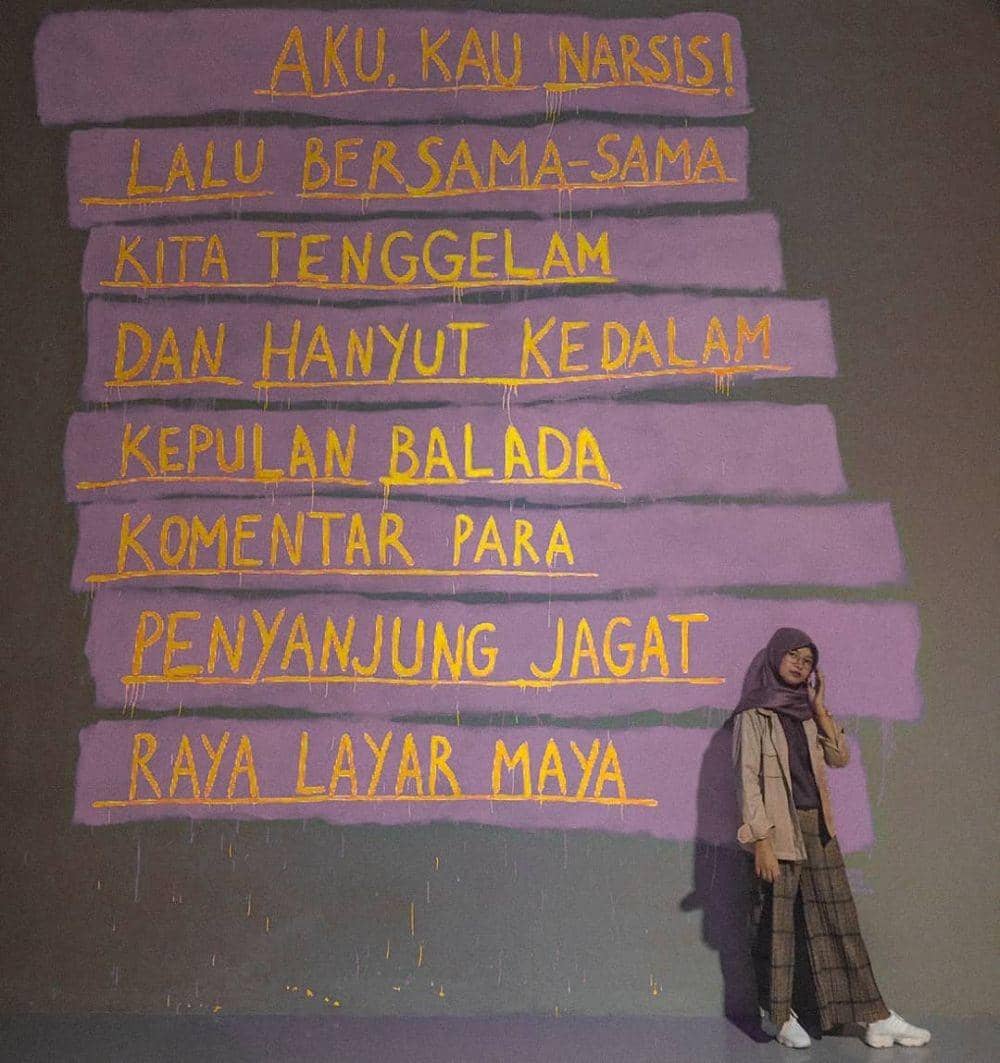 AKU, KAU NARSIS!
LALU BERSAMA-SAMA
KITA TENGGELAM
DAN HANYUT KEDALAM
KEPULAN BALADA
KOMENTAR PARA
PENYANJUNG JAGAT
RAYA LAYAR MAYA